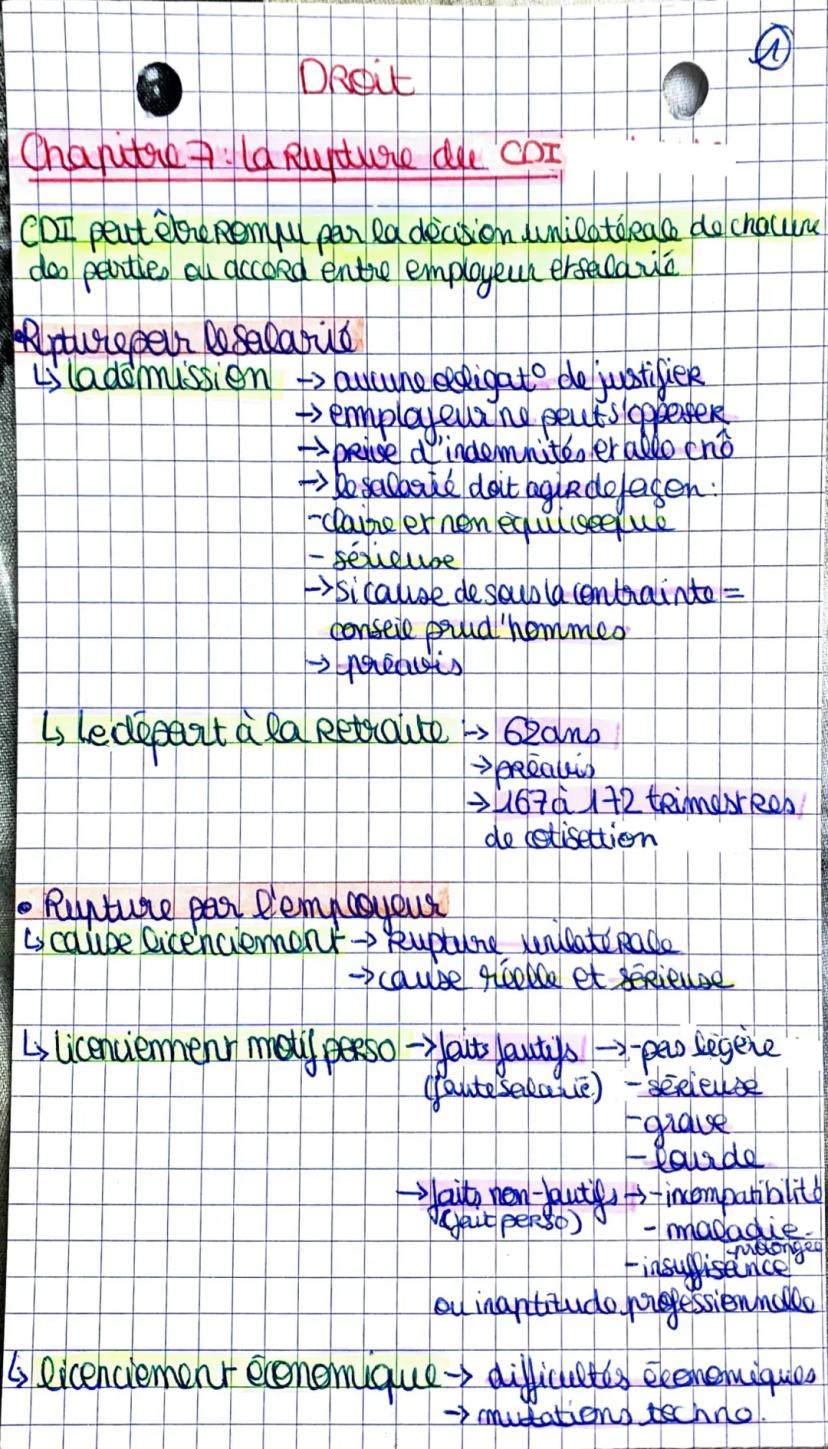 1
DROIT
Chapitre 7 : la Rupture du CDI
CDI peut être rompu par la décision unilatérale de chacune
des parties ou accord entre employeur et salarié
• Rupture par le salarié
↳ la démission → aucune obligat° de justifier
→ employeur ne peut s'opposer
→ prive d'indemnités et allo chô
→ le salarié doit agir de façon :
- claire et non équivoque
- sérieuse
→ si cause de sous la contrainte =
conseil prud'hommes
→ préavis
↳ le départ à la retraite → 62 ans
→ préavis
→ 167 à 172 trimestres
de cotisation
• Rupture par l'employeur
↳ cause licenciement → Rupture unilatérale
→ cause réelle et sérieuse
↳ licenciement motif perso → faits fautifs → - pas légère
(faute salarié) - sérieuse
- grave
- lourde
→ faits non-fautifs → - incompatibilité
(fait perso) - maladie
prolongée
- insuffisance
ou inaptitude professionnelle
↳ licenciement économique → difficultés économiques
→ mutations techno.